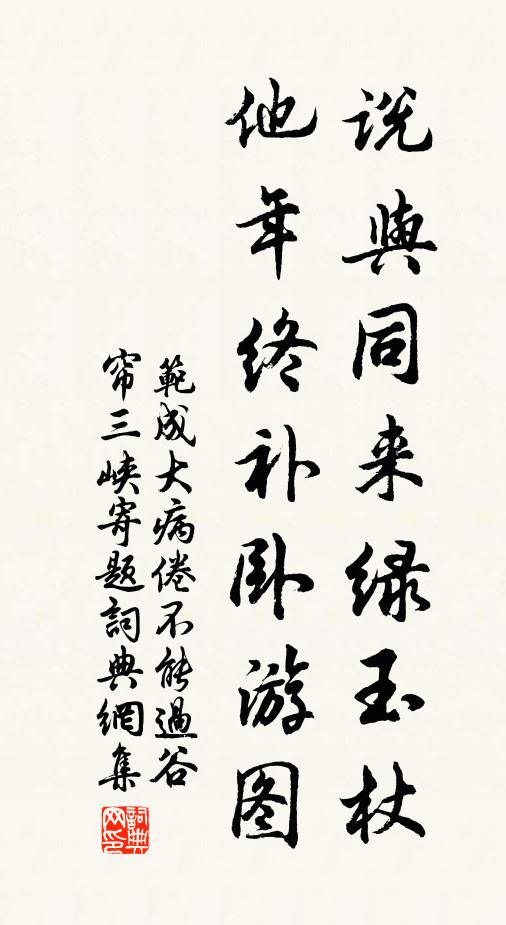 说與同来绿玉杖
他年终补卧游图
範成大病倦不能過谷
帘三峡寄题詞典網集
詞典
网印